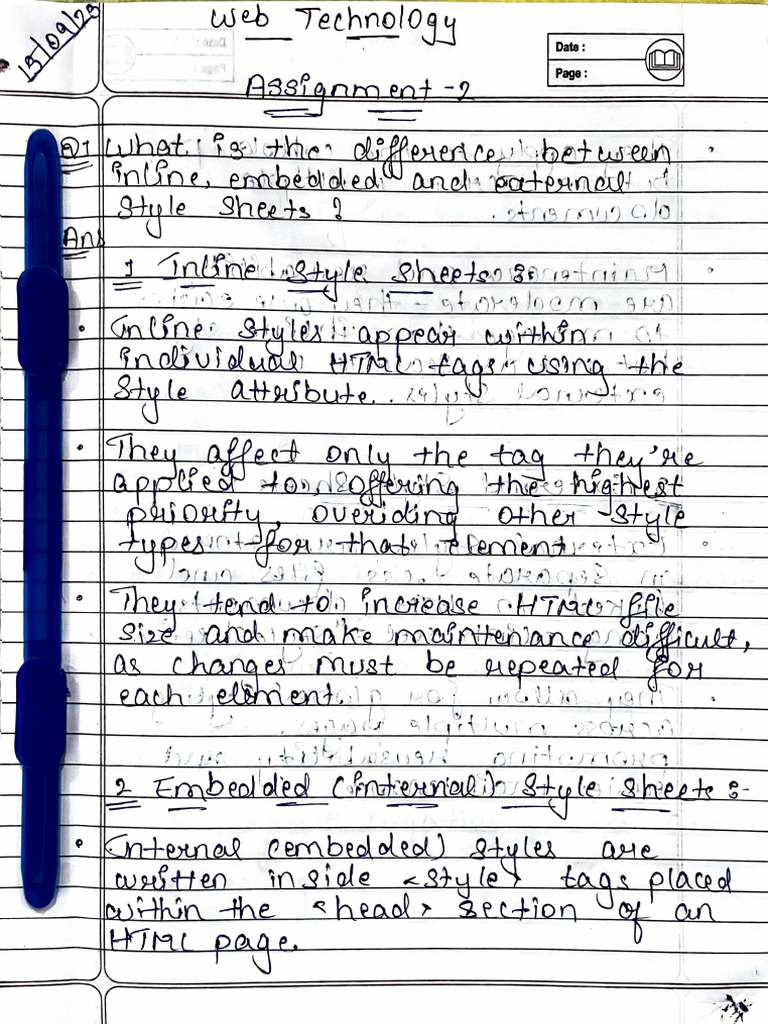 15/09/25
Web Technology
Date :
Page :
Assignment - 2
Q1 What is the difference between
inline, embedded and external
Style Sheets ?
Ans
1 Inline Style Sheets :-
• Inline Styles appear within
individual HTML tags using the
Style attribute.
• They affect only the tag they're
applied to, offering the highest
priority, overiding other style
types for that element.
• They tend to increase HTML file
size and make maintenance difficult,
as changes must be repeated for
each element.
2 Embedded (internal) Style Sheets :-
• Internal (embedded) styles are
written inside <style> tags placed
within the <head> section of an
HTML page.